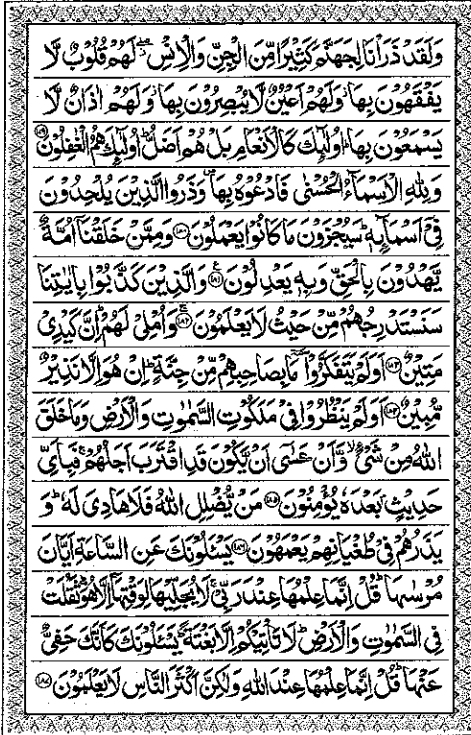 وَلَقَدْ ذَرَأْنَا لِجَهَنَّمَ كَثِيْرًا مِّنَ الْجِنِّ وَالْاِنْسِ ۖ لَهُمْ قُلُوْبٌ لَّا
يَفْقَهُوْنَ بِهَا ۫ وَلَهُمْ اَعْيُنٌ لَّا يُبْصِرُوْنَ بِهَا ۫ وَلَهُمْ اٰذَانٌ لَّا
يَسْمَعُوْنَ بِهَا ؕ اُولٰٓئِكَ كَالْاَنْعَامِ بَلْ هُمْ اَضَلُّ ؕ اُولٰٓئِكَ هُمُ الْغٰفِلُوْنَ ﴿۱۷۹﴾
وَ لِلّٰهِ الْاَسْمَآءُ الْحُسْنٰى فَادْعُوْهُ بِهَا ۪ وَ ذَرُوا الَّذِيْنَ يُلْحِدُوْنَ
فِيْۤ اَسْمَآئِهٖ ؕ سَيُجْزَوْنَ مَا كَانُوْا يَعْمَلُوْنَ ﴿۱۸۰﴾ وَ مِمَّنْ خَلَقْنَاۤ اُمَّةٌ
يَّهْدُوْنَ بِالْحَقِّ وَ بِهٖ يَعْدِلُوْنَ ﴿۱۸۱﴾ وَ الَّذِيْنَ كَذَّبُوْا بِاٰيٰتِنَا
سَنَسْتَدْرِجُهُمْ مِّنْ حَيْثُ لَا يَعْلَمُوْنَ ﴿۱۸۲﴾ وَ اُمْلِيْ لَهُمْ ؕ اِنَّ كَيْدِيْ
مَتِيْنٌ ﴿۱۸۳﴾ اَوَلَمْ يَتَفَكَّرُوْا ٚ مَا بِصَاحِبِهِمْ مِّنْ جِنَّةٍ ؕ اِنْ هُوَ اِلَّا نَذِيْرٌ
مُّبِيْنٌ ﴿۱۸۴﴾ اَوَلَمْ يَنْظُرُوْا فِيْ مَلَكُوْتِ السَّمٰوٰتِ وَ الْاَرْضِ وَ مَا خَلَقَ
اللّٰهُ مِنْ شَيْءٍ ۙ وَّ اَنْ عَسٰۤى اَنْ يَّكُوْنَ قَدِ اقْتَرَبَ اَجَلُهُمْ ۚ فَبِاَيِّ
حَدِيْثٍۭ بَعْدَهٗ يُؤْمِنُوْنَ ﴿۱۸۵﴾ مَنْ يُّضْلِلِ اللّٰهُ فَلَا هَادِيَ لَهٗ ؕ وَ
يَذَرُهُمْ فِيْ طُغْيَانِهِمْ يَعْمَهُوْنَ ﴿۱۸۶﴾ يَسْـَٔلُوْنَكَ عَنِ السَّاعَةِ اَيَّانَ
مُرْسٰىهَا ؕ قُلْ اِنَّمَا عِلْمُهَا عِنْدَ رَبِّيْ ۚ لَا يُجَلِّيْهَا لِوَقْتِهَاۤ اِلَّا هُوَ ؔ ثَقُلَتْ
فِي السَّمٰوٰتِ وَ الْاَرْضِ ؕ لَا تَاْتِيْكُمْ اِلَّا بَغْتَةً ؕ يَسْـَٔلُوْنَكَ كَاَنَّكَ حَفِيٌّ
عَنْهَا ؕ قُلْ اِنَّمَا عِلْمُهَا عِنْدَ اللّٰهِ وَ لٰكِنَّ اَكْثَرَ النَّاسِ لَا يَعْلَمُوْنَ ﴿۱۸۷﴾